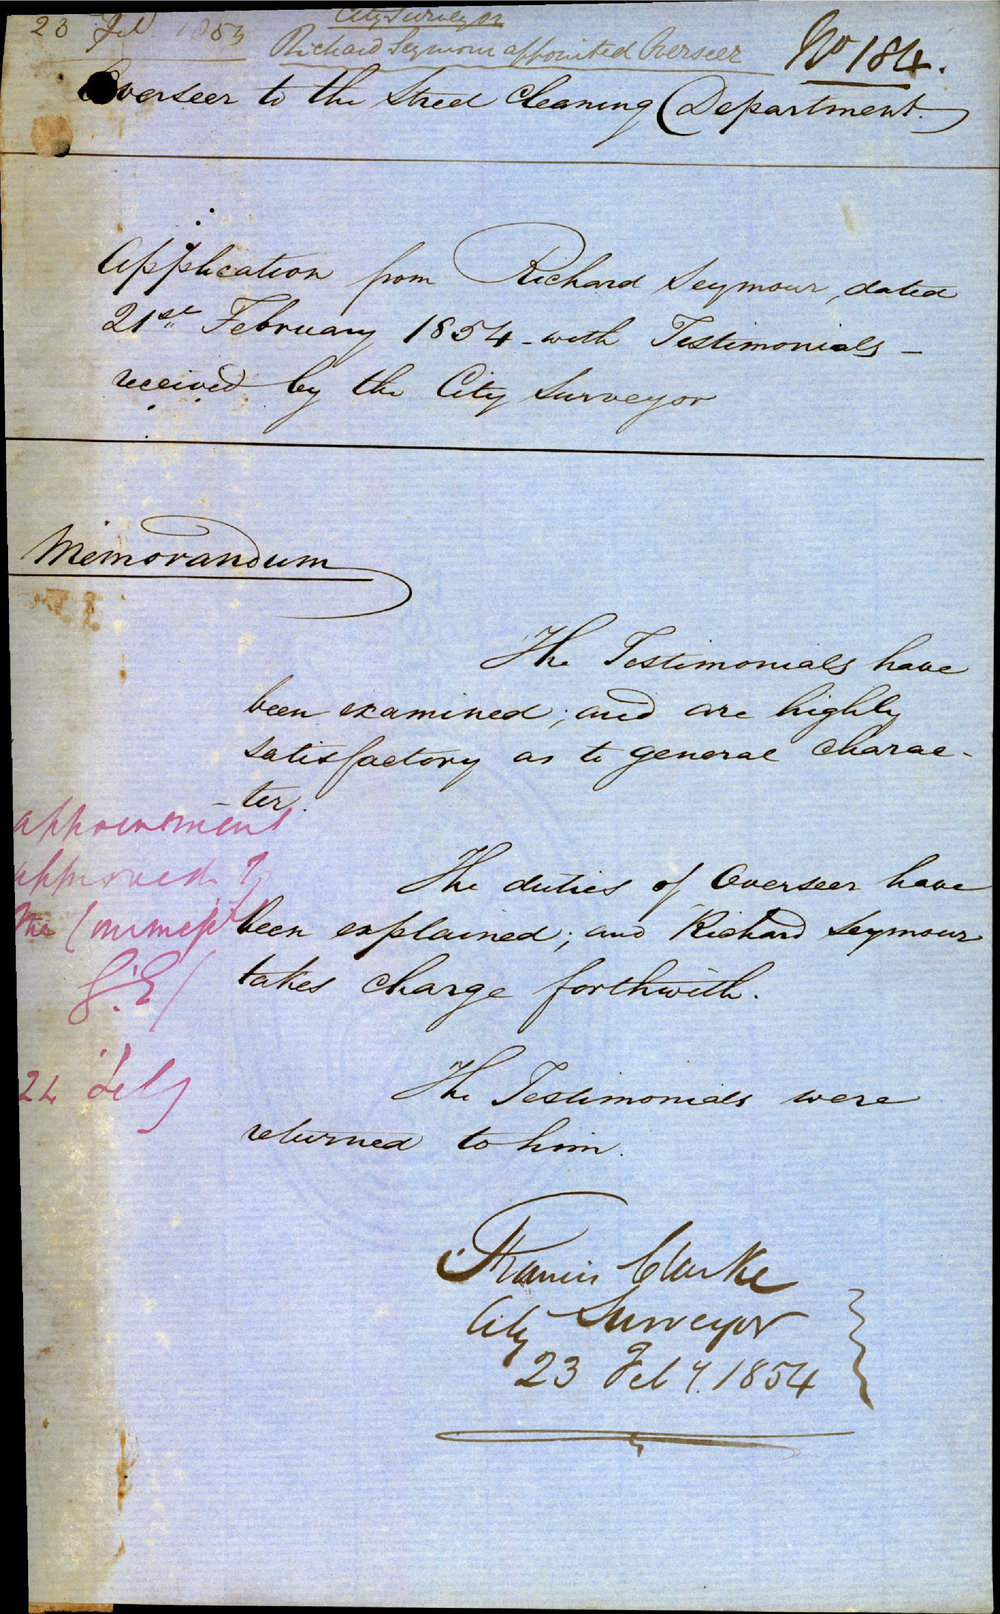 City Surveyor
23 Feb 1854
Richard Seymour appointed Overseer
No 184.
Overseer to the Street Cleaning Department.
Application from Richard Seymour, dated
21st February 1854 - with Testimonials -
received by the City Surveyor
Memorandum
The Testimonials have
been examined; and are highly
satisfactory as to general charac-
-ter.
The duties of Overseer have
been explained; and Richard Seymour
takes charge forthwith.
The Testimonials were
returned to him.
appointment
approved by
the
24 Feby
Francis Clarke
City Surveyor
23 Feby. 1854